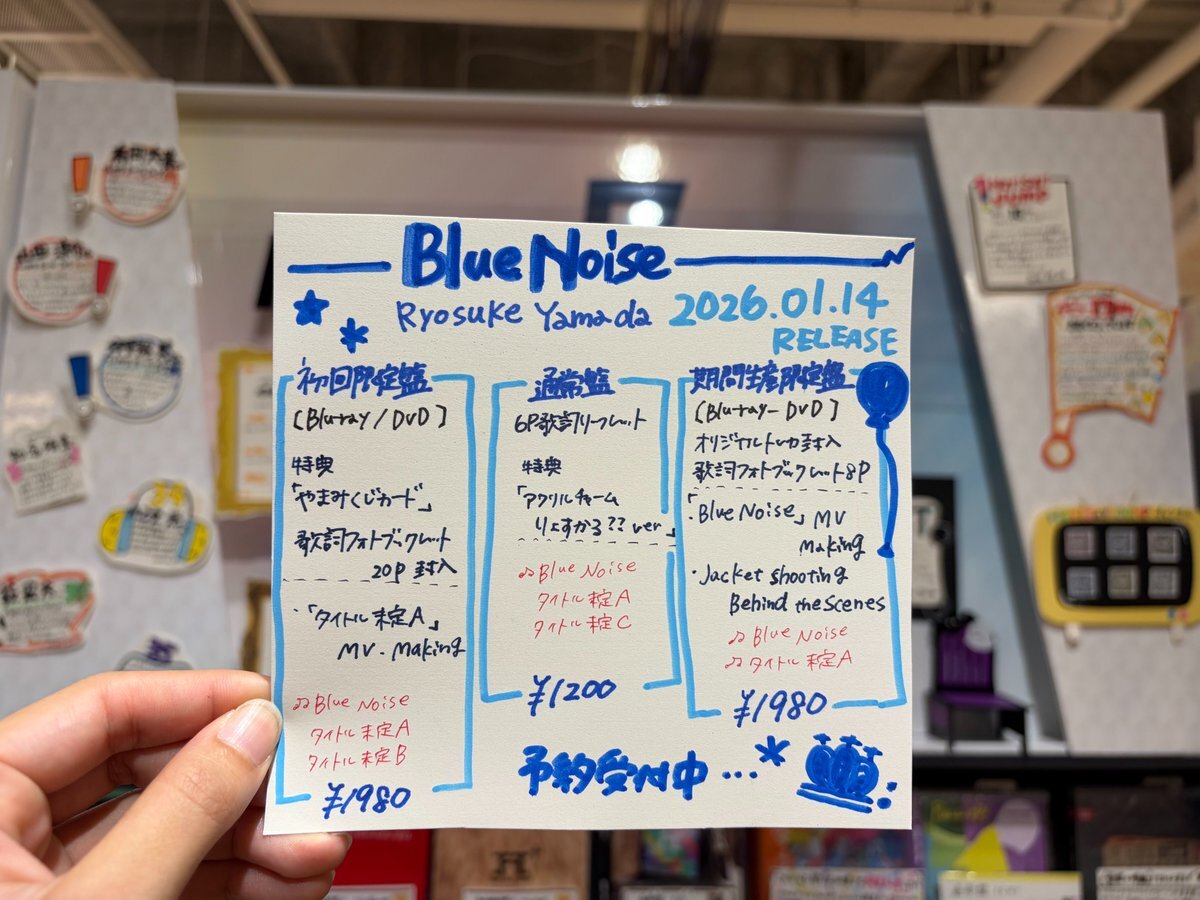 Blue Noise
Ryosuke Yamada
2026.01.14
RELEASE
初回限定盤
[Blu-ray / DVD]
特典
「やまみくじカード」
歌詞フォトブックレット
20P 封入
・「タイトル未定A」
MV. Making
♫ Blue Noise
タイトル未定A
タイトル未定B
¥1980
通常盤
6P歌詞リーフレット
特典
「アクリルチャーム
りょすかる?? ver」
♫ Blue Noise
タイトル未定A
タイトル未定C
¥1200
期間生産限定盤
[Blu-ray - DVD]
オリジナルトレカ封入
歌詞フォトブックレット8P
・「Blue Noise」MV
Making
・Jacket shooting
Behind the Scenes
♫ Blue Noise
♫ タイトル未定A
¥1980
予約受付中...